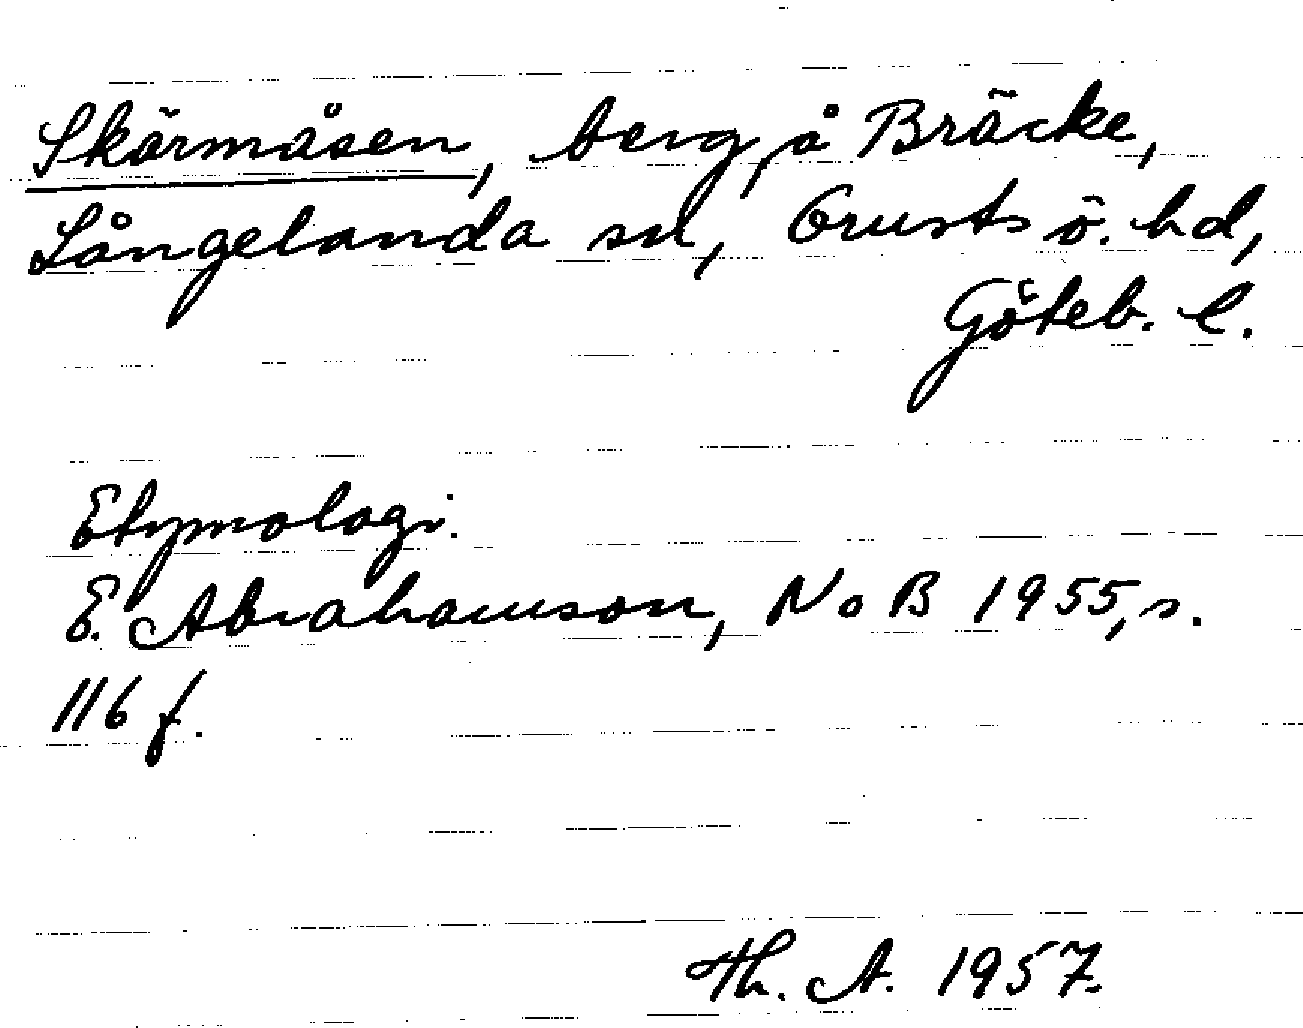 Skärmåsen, berg på Bräcke,
Långelanda sn, Orusts ö. hd,
Göteb. l.
Etymologi.
E. Abrahamson, NoB 1955, s.
116 f.
Th. A. 1957.